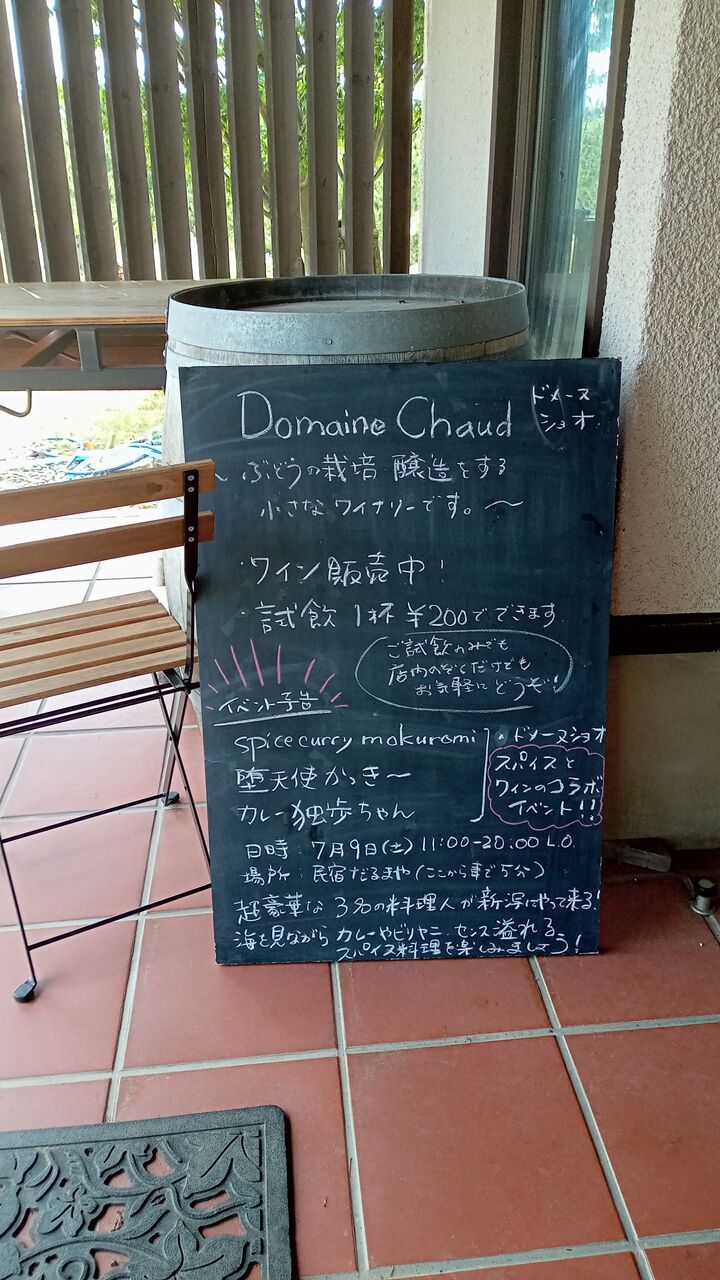 Domaine Chaud
ドメーヌ
ショオ
~ ぶどうの栽培 醸造をする
小さな ワイナリーです。~
・ワイン販売中！
・試飲 1杯 ¥200でできます
ご試飲のみでも
店内のぞくだけでも
お気軽に どうぞ！
イベント予告
spice curry mokuromi
堕天使かっきー
カレー独歩ちゃん
× ドメーヌショオ
スパイスと
ワインのコラボ
イベント!!
日時：7月9日(土) 11:00-20:00 L.O.
場所：民宿だるまや (ここから車で5分)
超豪華な 3名の料理人が新潟にやって来る！
海を見ながら カレーやビリヤニ、センス溢れる
スパイス料理を楽しみましょう！